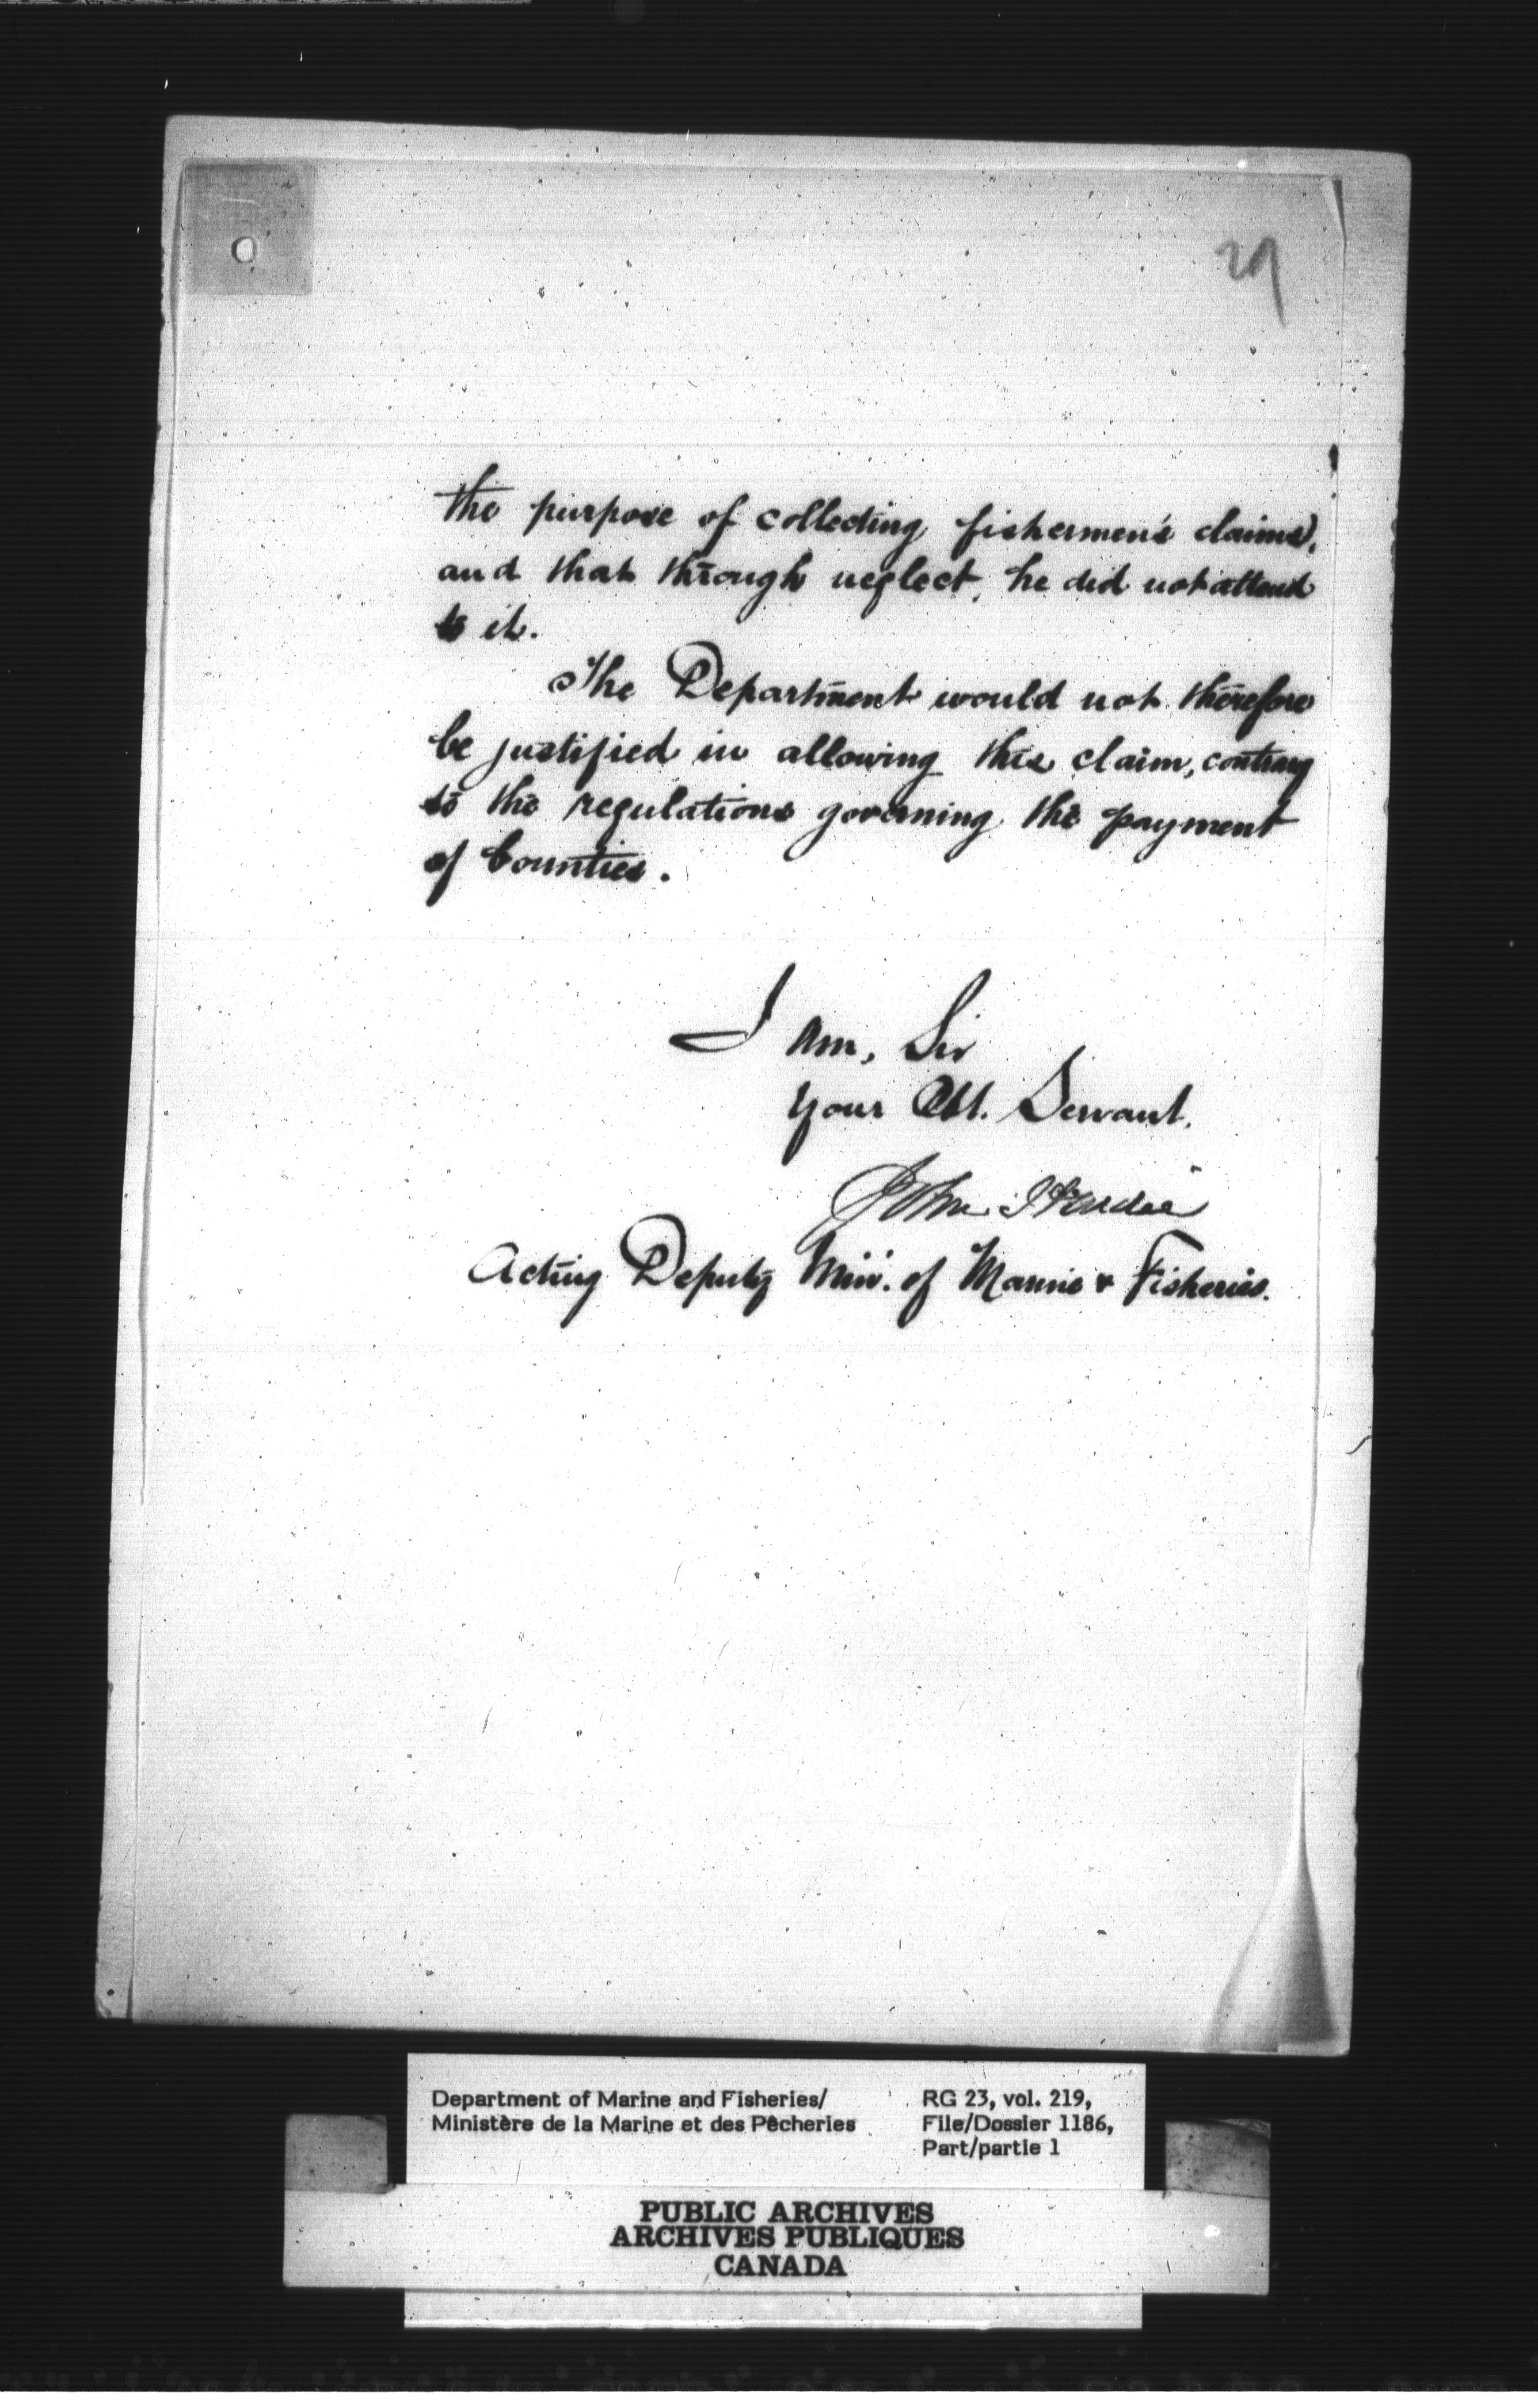 29
the purpose of collecting fishermen's claims,
and that through neglect, he did not attend
to it.
The Department would not therefore
be justified in allowing this claim, contrary
to the regulations governing the payment
of bounties.
I am, Sir
Your Obt. Servant.
John Hardie
Acting Deputy Min. of Marine & Fisheries.
Department of Marine and Fisheries/
Ministère de la Marine et des Pêcheries
RG 23, vol. 219,
File/Dossier 1186,
Part/partie 1
PUBLIC ARCHIVES
ARCHIVES PUBLIQUES
CANADA